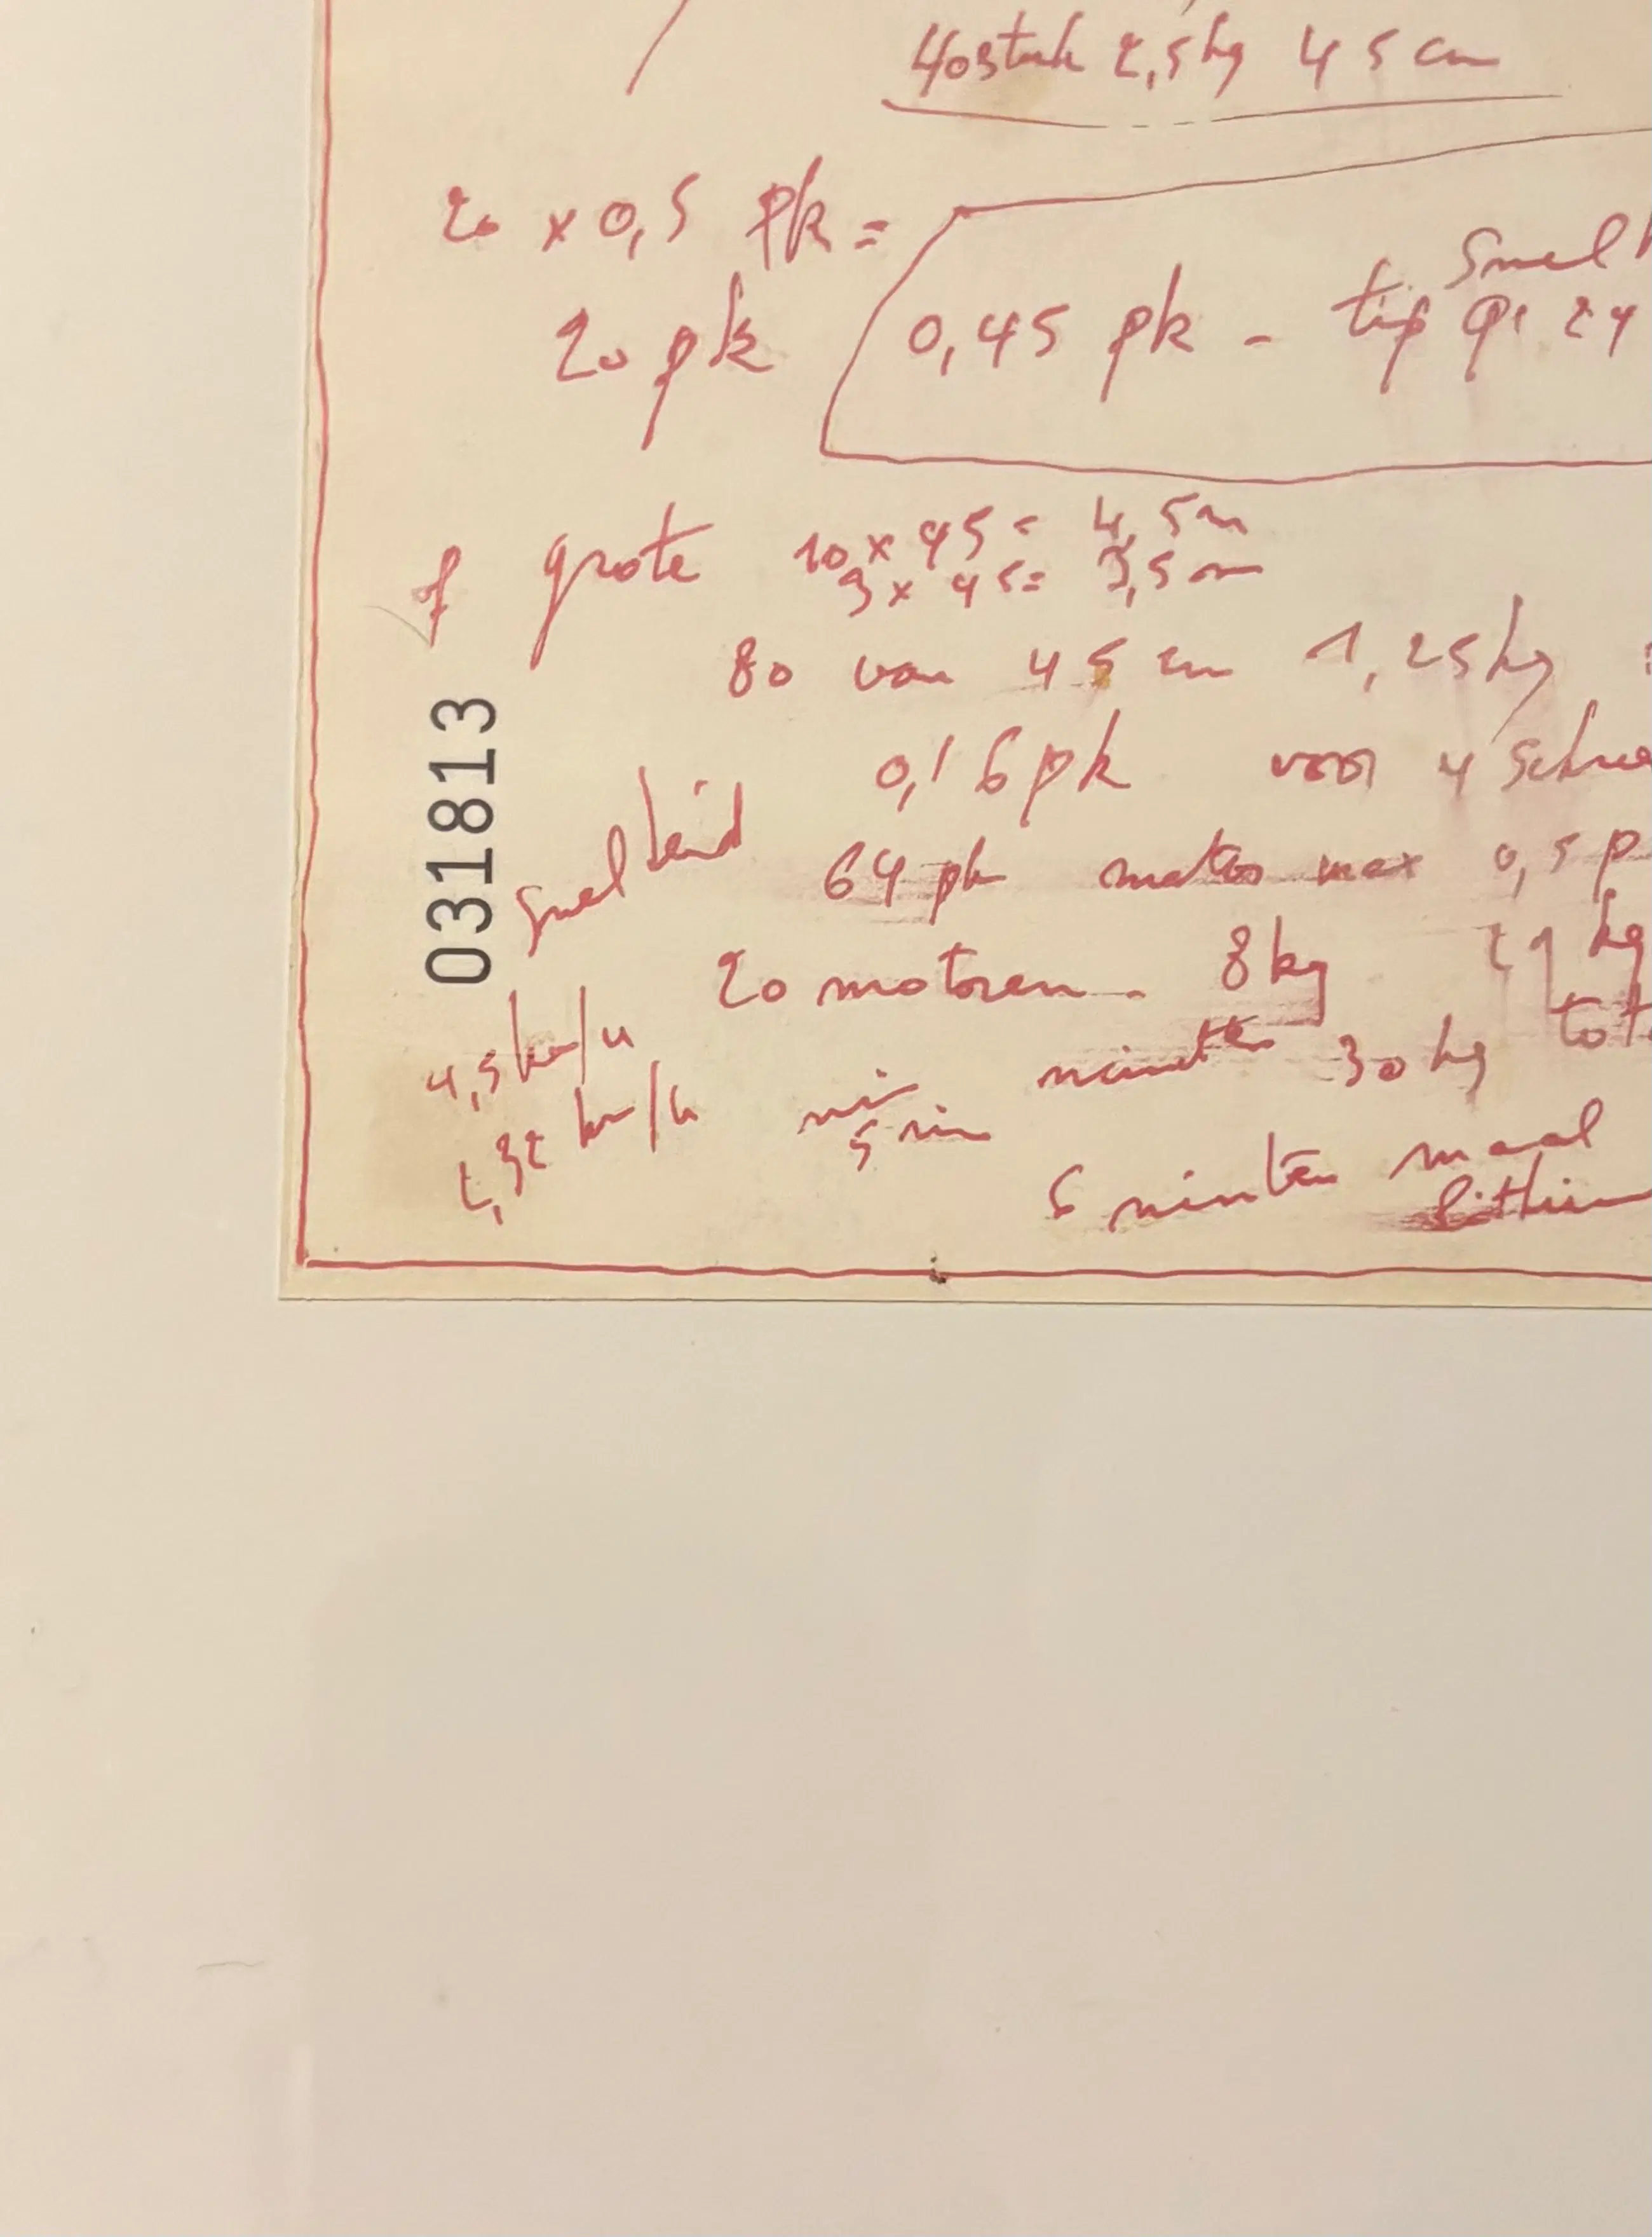 40 stuk 2,5 kg 45 cm
20 x 0,5 pk =
20 pk
snelh
0,45 pk - tip
of grote 10 x 45 = 4,5 m
9 x 45 = 3,5 m
80 van 45 cm 1,25 kg
0,16 pk voor 4 schroe
snelheid 64 pk motor max 0,5 p
20 motoren - 8 kg kg
4,5 km/u minuten 30 kg tot
2,32 km/u min
5 min
6 minuten maal
lithium
031813